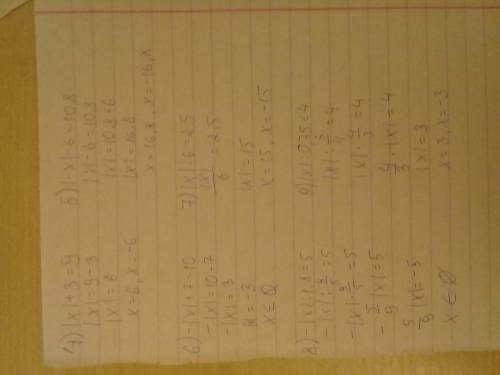 4) |x|+3=9
|x|=9-3
|x|=6
x=6, x=-6
5) |-x|-6=10.8
|x|-6=10.8
|x|=10.8+6
|x|=16.8
x=16,8, x=-16,8
6) -|x|+7=10
-|x|=10-7
-|x|=3
x∈Q
7) |x|:6=2.5
|x|/6=2.5
|x|=15
x=15, x=-15
8) -|x|:1,8=5
-|x|:9/5=5
-|x|·5/9=5
-5/9|x|=5
5/9|x|=-5
x∈Ø
9) |x|:0,75=4
|x|:3/4=4
|x|·4/3=4
4/3·|x|=4
|x|=3
x=3, x=-3